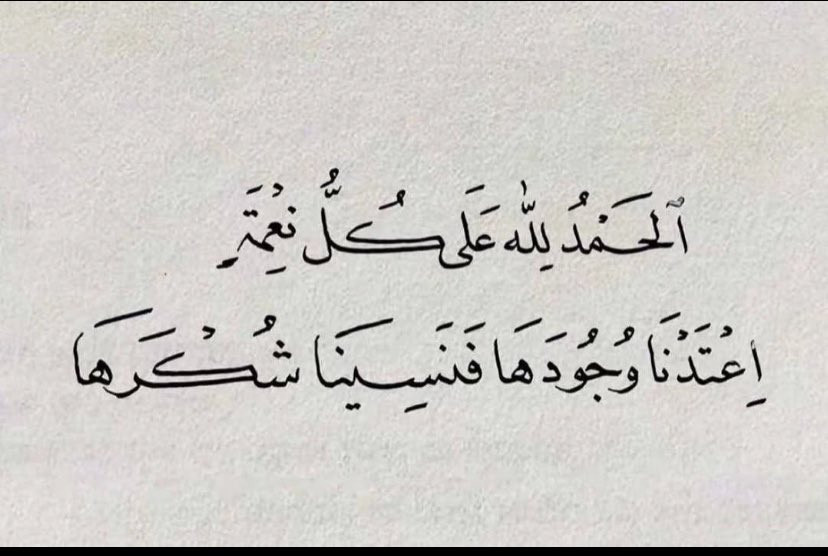 ٱلحَمْدُ لِلّٰه عَلَى كُلُّ نِعْمَةٍ
اِعْتَدْنَا وُجُودَهَا فَنَسِينَا شُكْرَهَا